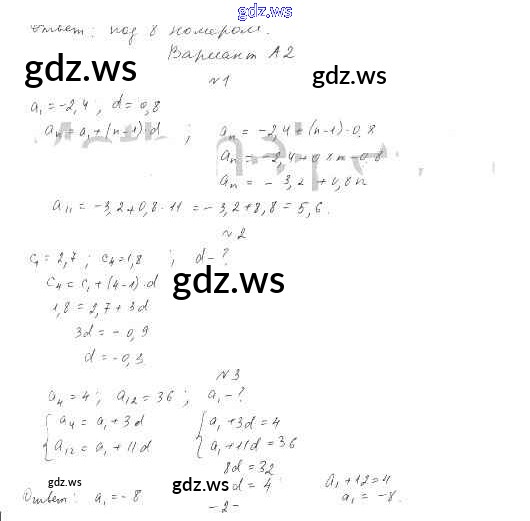 gdz.ws
Ответ: под 8 номером.
Вариант А2
gdz.ws
gdz.ws
№1
a₁ = -2,4 , d = 0,8
aₙ = a₁ + (n-1)·d ; aₙ = -2,4 + (n-1)·0,8
aₙ = -2,4 + 0,8n - 0,8
aₙ = -3,2 + 0,8n
a₁₁ = -3,2 + 0,8·11 = -3,2 + 8,8 = 5,6.
№2
c₁ = 2,7 ; c₄ = 1,8 ; d - ?
gdz.ws
c₄ = c₁ + (4-1)·d
1,8 = 2,7 + 3d
3d = -0,9
d = -0,3
№3
a₄ = 4 ; a₁₂ = 36 ; a₁ - ?
{ a₄ = a₁ + 3d { a₁ + 3d = 4
a₁₂ = a₁ + 11d a₁ + 11d = 36
8d = 32
gdz.ws gdz.ws d = 4 a₁ + 12 = 4
Ответ: a₁ = -8 a₁ = -8.
-2-
gdz.ws